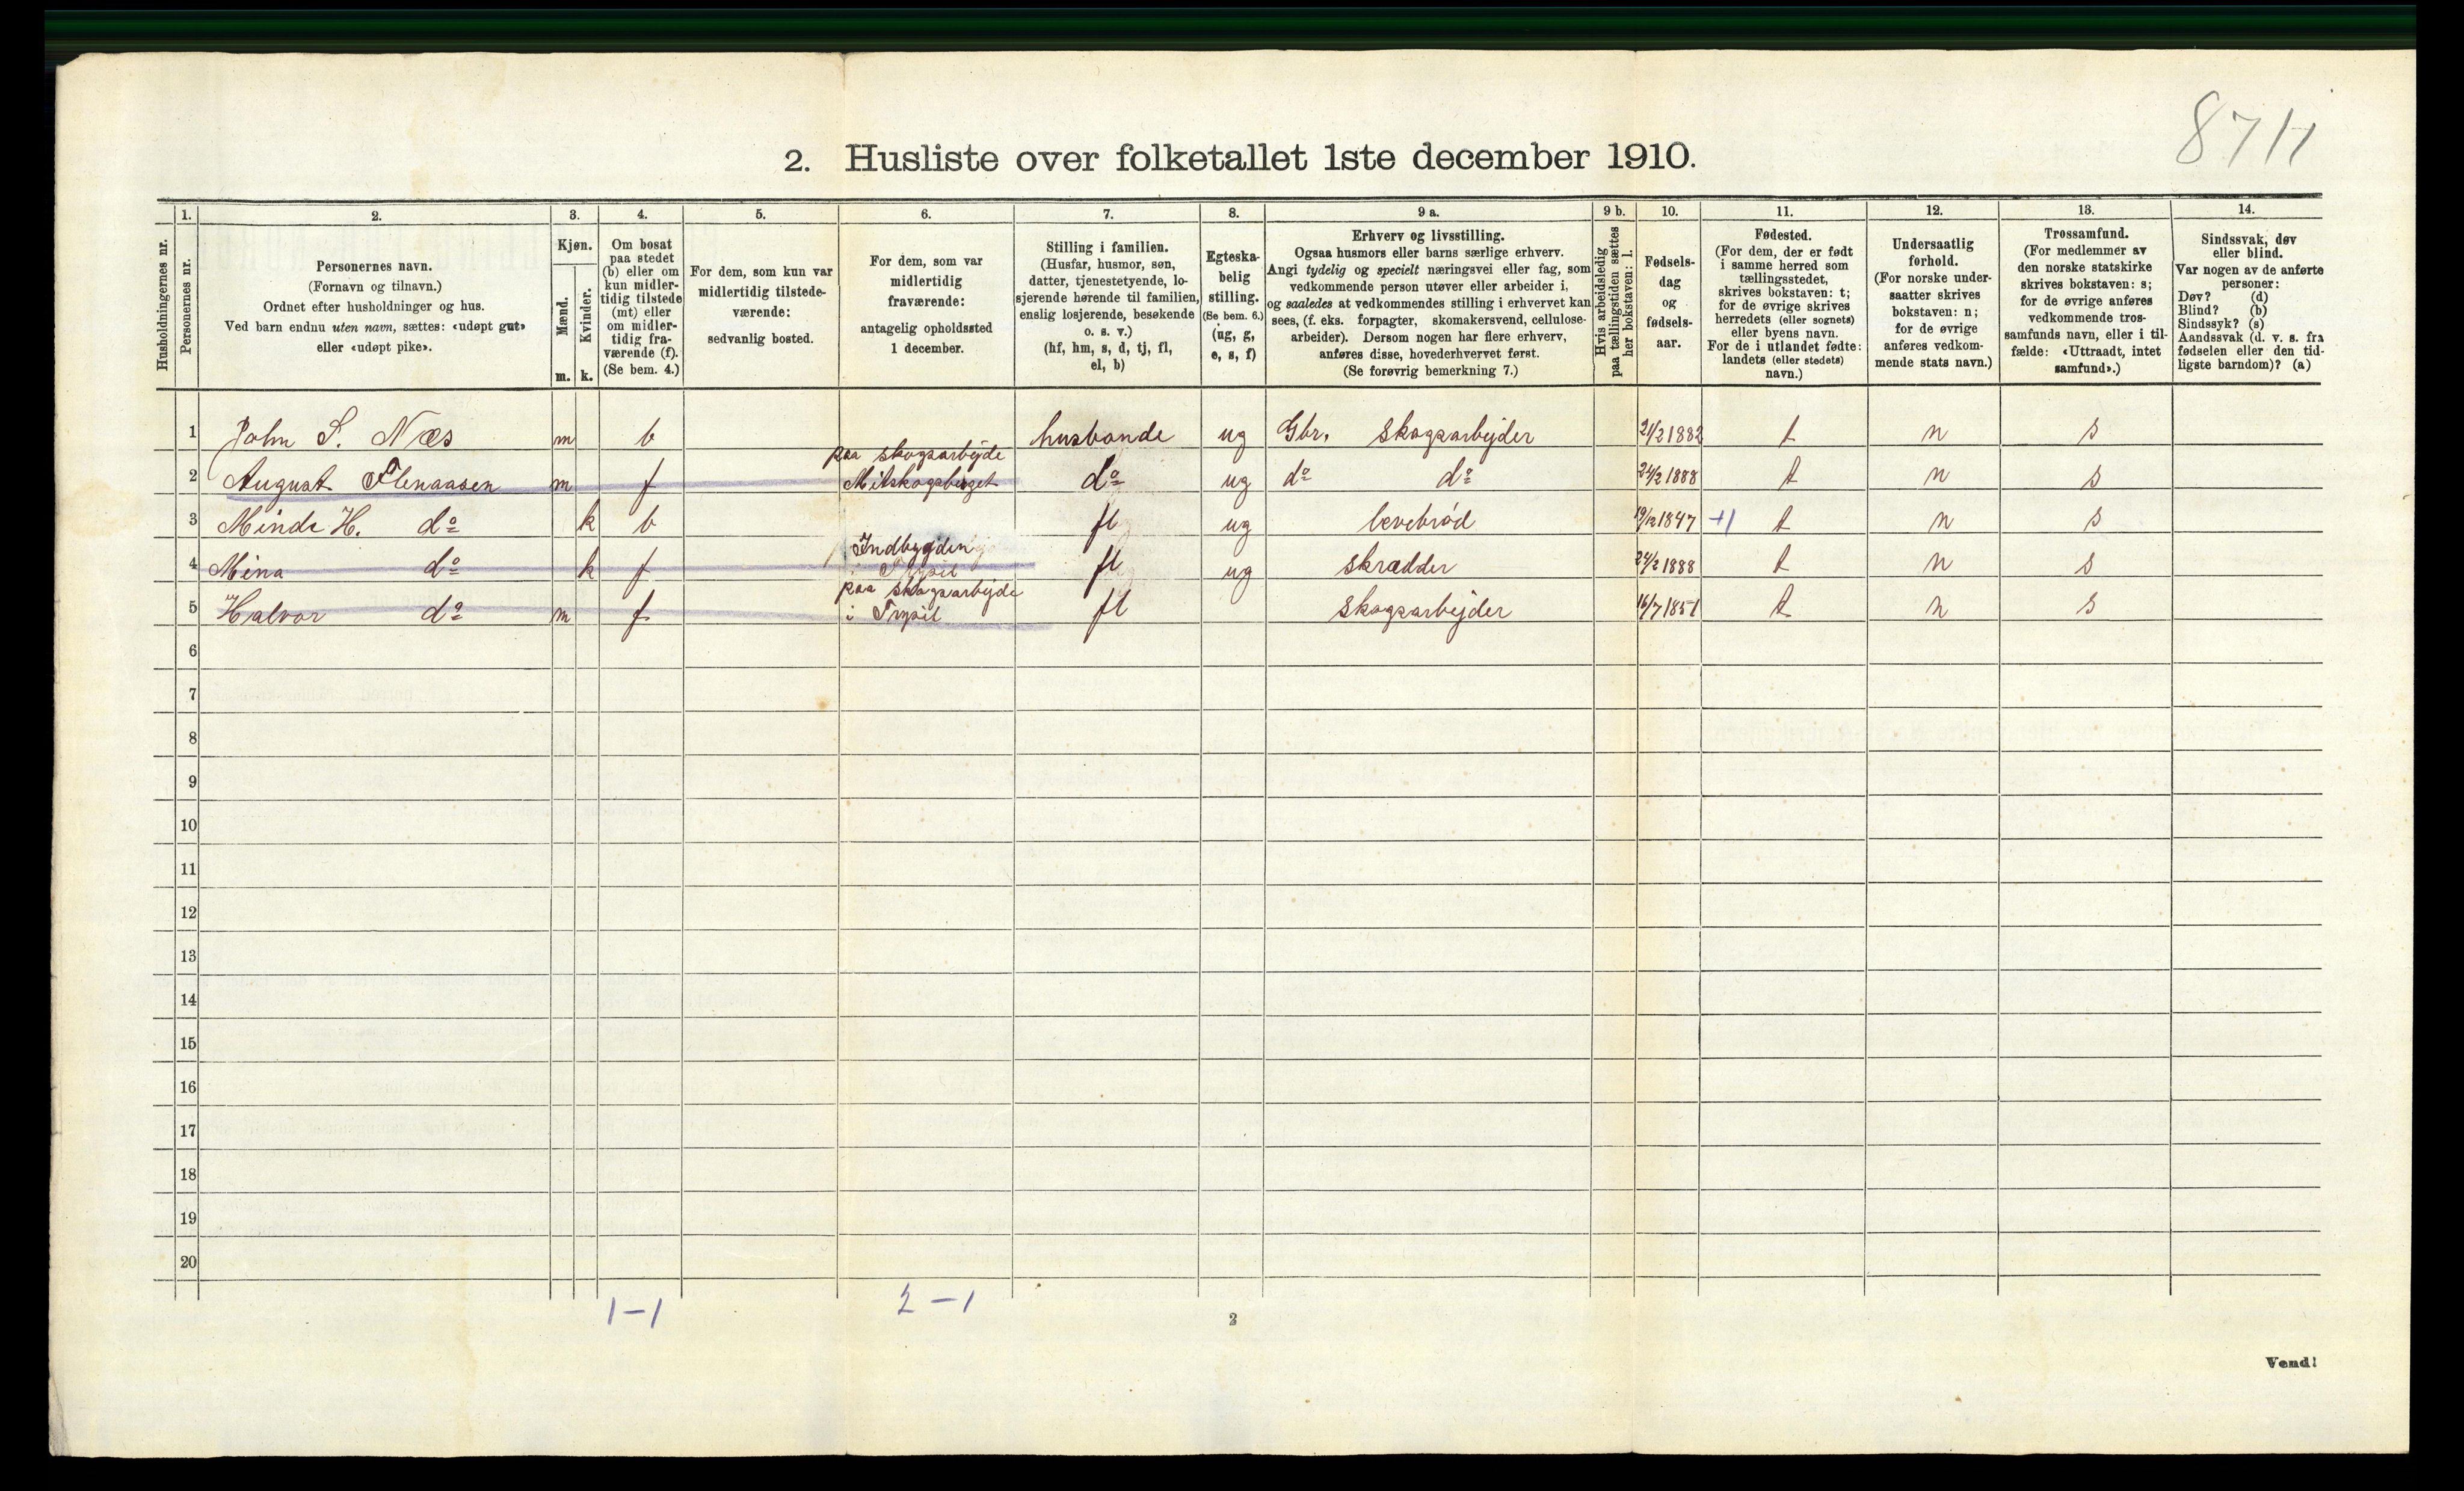 8711
2. Husliste over folketallet 1ste december 1910.
Husholdningernes nr.
1.
Personernes nr.
2.
Personernes navn.
(Fornavn og tilnavn.)
Ordnet efter husholdninger og hus.
Ved barn endnu uten navn, sættes: «udøpt gut»
eller «udøpt pike».
3.
Kjøn.
Mænd.
Kvinder.
m. k.
4.
Om bosat
paa stedet
(b) eller om
kun midler-
tidig tilstede
(mt) eller
om midler-
tidig fra-
værende (f).
(Se bem. 4.)
5.
For dem, som kun var
midlertidig tilstede-
værende:
sedvanlig bosted.
6.
For dem, som var
midlertidig
fraværende:
antagelig opholdssted
1 december.
7.
Stilling i familien.
(Husfar, husmor, søn,
datter, tjenestetyende, lo-
sjerende hørende til familien,
enslig losjerende, besøkende
o. s. v.)
(hf, hm, s, d, tj, fl,
el, b)
8.
Egteska-
belig
stilling.
(Se bem. 6.)
(ug, g,
e, s, f)
9 a.
Erhverv og livsstilling.
Ogsaa husmors eller barns særlige erhverv.
Angi tydelig og specielt næringsvei eller fag, som
vedkommende person utøver eller arbeider i,
og saaledes at vedkommendes stilling i erhvervet kan
sees, (f. eks. forpagter, skomakersvend, cellulose-
arbeider). Dersom nogen har flere erhverv,
anføres disse, hovederhvervet først.
(Se forøvrig bemerkning 7.)
9 b.
Hvis arbeidsledig
paa tællingstiden sættes
her bokstaven: l.
10.
Fødsels-
dag
og
fødsels-
aar.
11.
Fødested.
(For dem, der er født
i samme herred som
tællingsstedet,
skrives bokstaven: t;
for de øvrige skrives
herredets (eller sognets)
eller byens navn.
For de i utlandet fødte:
landets (eller stedets)
navn.)
12.
Undersaatlig
forhold.
(For norske under-
saatter skrives
bokstaven: n;
for de øvrige
anføres vedkom-
mende stats navn.)
13.
Trossamfund.
(For medlemmer av
den norske statskirke
skrives bokstaven: s;
for de øvrige anføres
vedkommende tros-
samfunds navn, eller i til-
fælde: «Uttraadt, intet
samfund».)
14.
Sindssvak, døv
eller blind.
Var nogen av de anførte
personer:
Døv? (d)
Blind? (b)
Sindssyk? (s)
Aandssvak (d. v. s. fra
fødselen eller den tid-
ligste barndom)? (a)
1 John S. Næs m b husbonde ug Gbr. skogsarbejder 21/2 1882 t n s
paa skogsarbejde
2 August Flenaasen m f Mitskogsberget do ug do do 24/2 1888 t n s
3 Minda H. do k b fl ug levebrød 19/12 1847 +1 t n s
Indbygden
4 Mina do k f i Trysil fl ug skrædder 24/2 1888 t n s
paa skogsarbejde
5 Halvor do m f i Trysil fl skogsarbejder 16/7 1851 t n s
6
7
8
9
10
11
12
13
14
15
16
17
18
19
20
1-1
2-1
2
Vend!